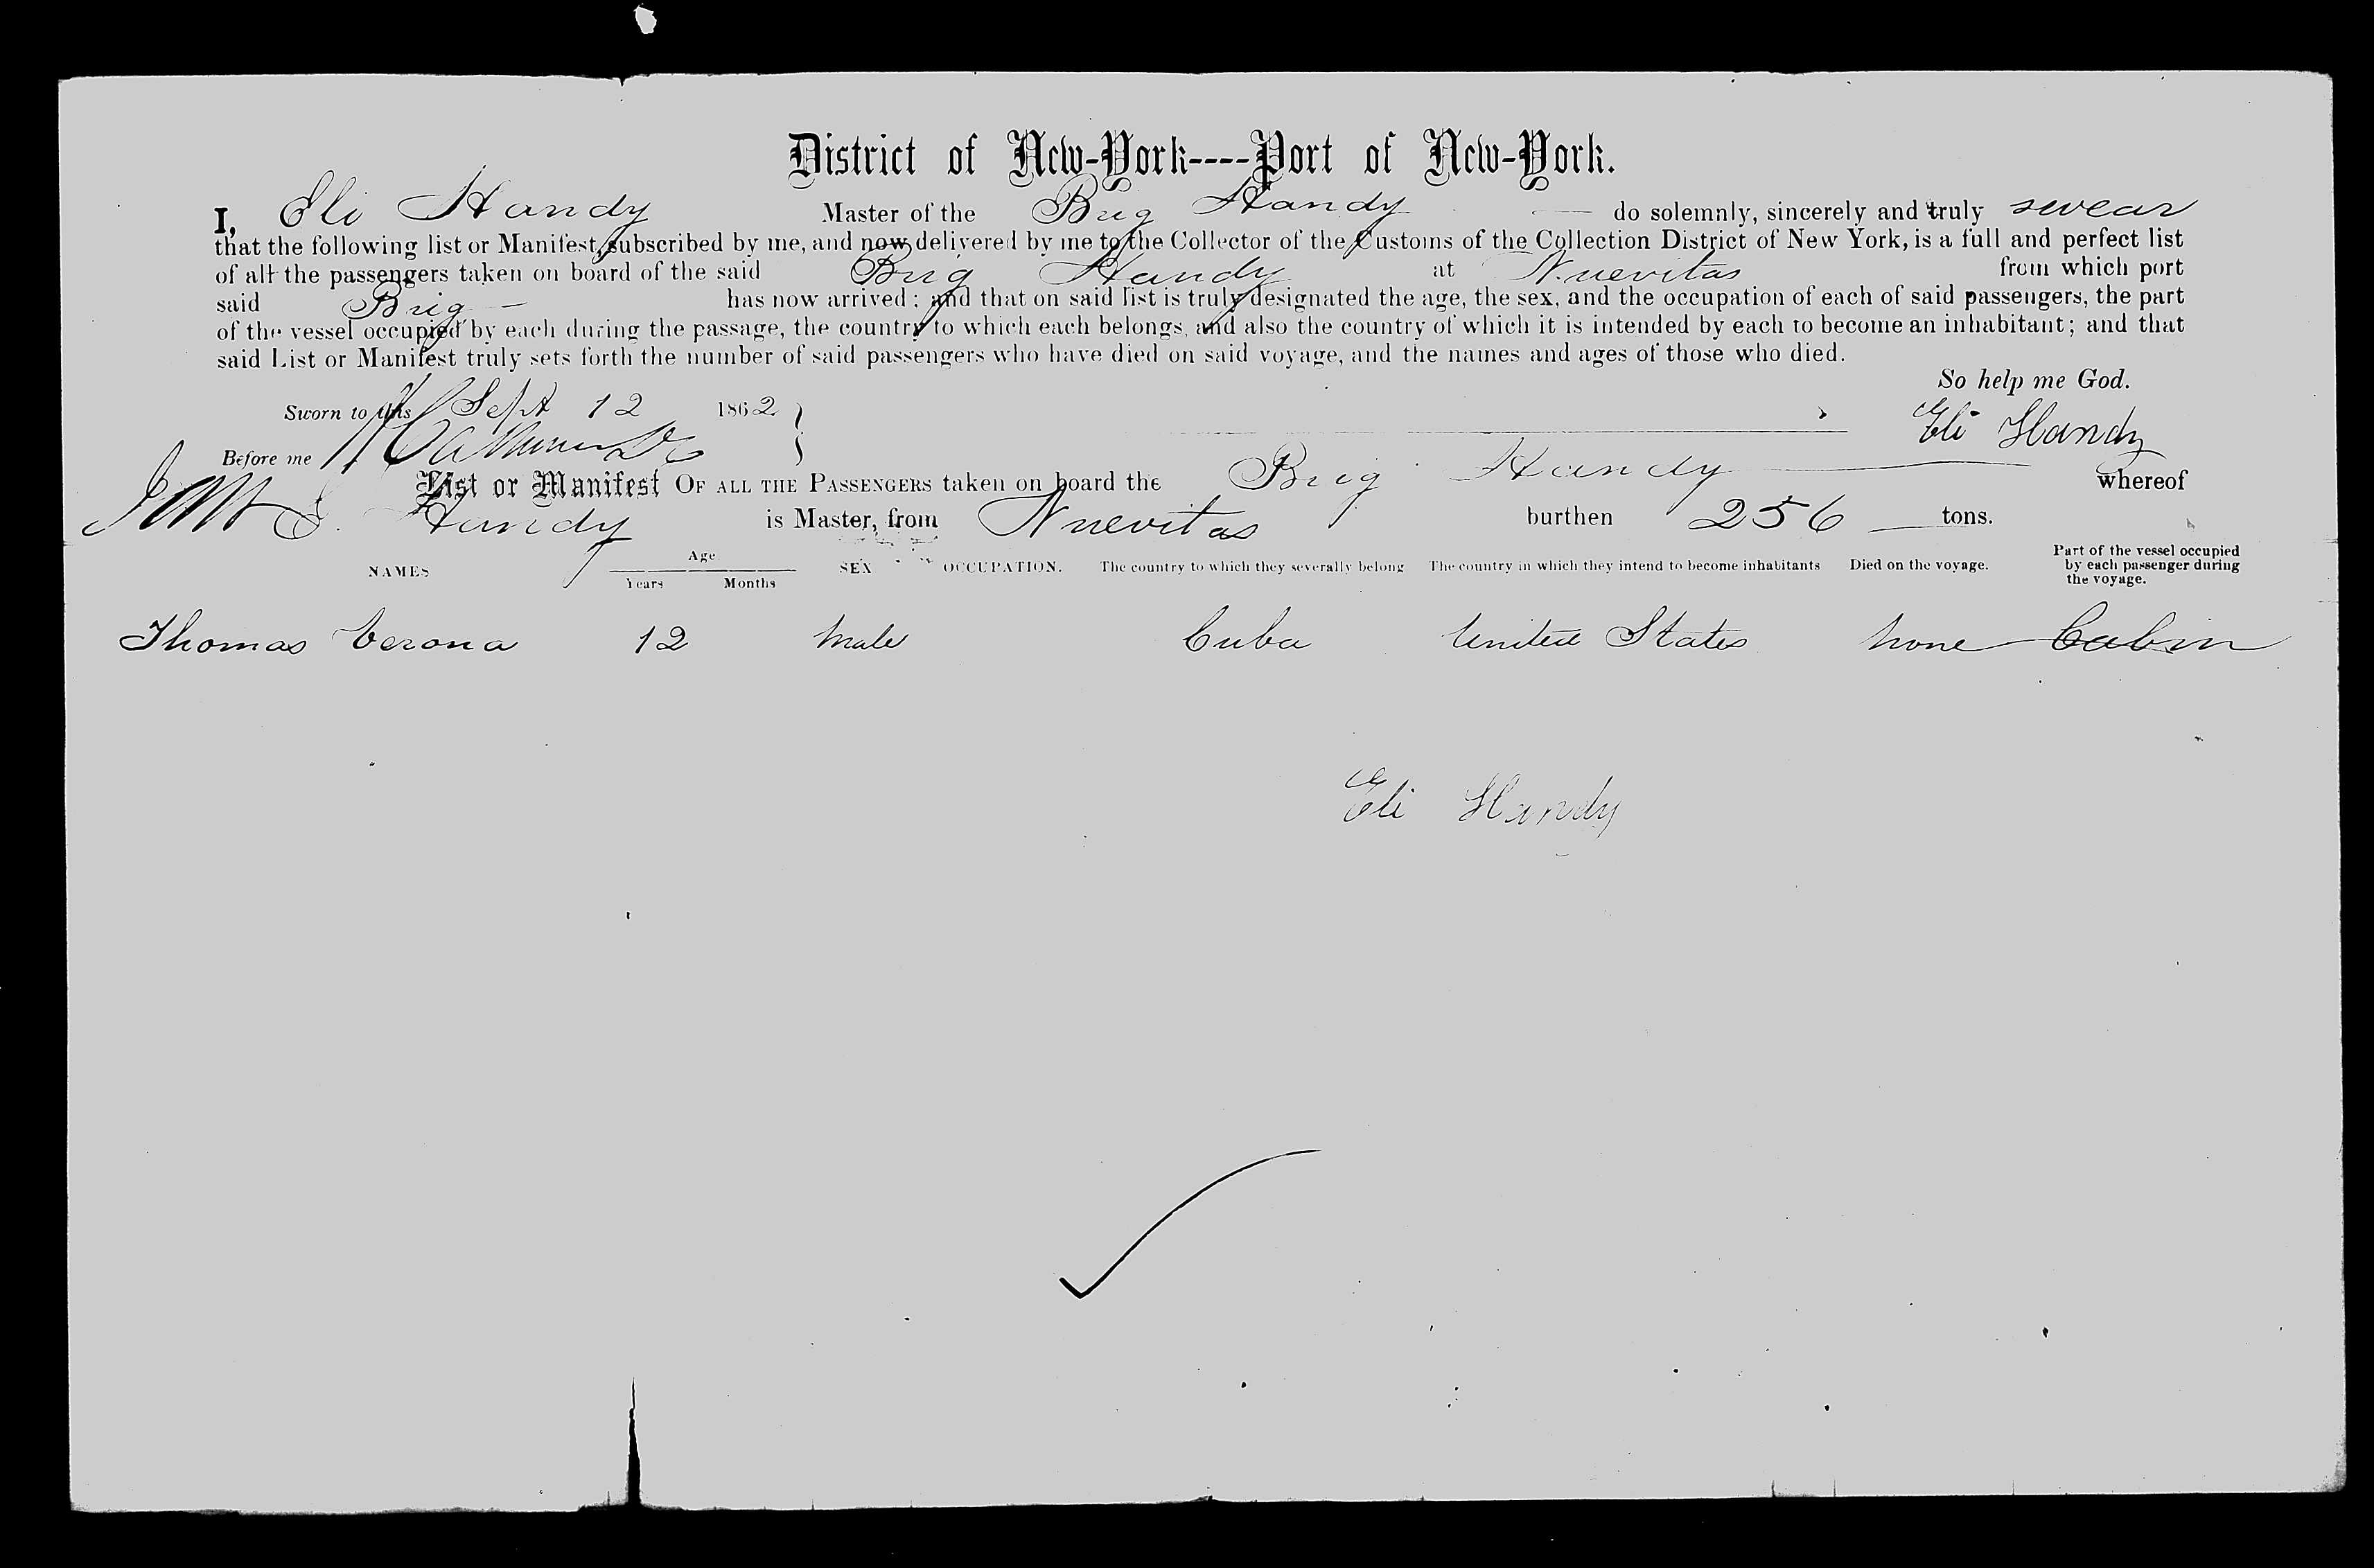 District of New-York----Port of New-York.
I, Eli Handy Master of the Brig Handy do solemnly, sincerely and truly swear
that the following list or Manifest, subscribed by me, and now delivered by me to the Collector of the Customs of the Collection District of New York, is a full and perfect list
of all the passengers taken on board of the said Brig Handy at Nuevitas from which port
said Brig has now arrived: and that on said list is truly designated the age, the sex, and the occupation of each of said passengers, the part
of the vessel occupied by each during the passage, the country to which each belongs, and also the country of which it is intended by each to become an inhabitant; and that
said List or Manifest truly sets forth the number of said passengers who have died on said voyage, and the names and ages of those who died.
So help me God.
Sworn to this Sept 12 1862
Eli Handy
Before me
List or Manifest OF ALL THE PASSENGERS taken on board the Brig Handy whereof
Handy is Master, from Nuevitas burthen 256 tons.
NAMES Age Years Months SEX OCCUPATION. The country to which they severally belong The country in which they intend to become inhabitants Died on the voyage. Part of the vessel occupied by each passenger during the voyage.
Thomas Verona 12 Male Cuba United States None Cabin
Eli Handy